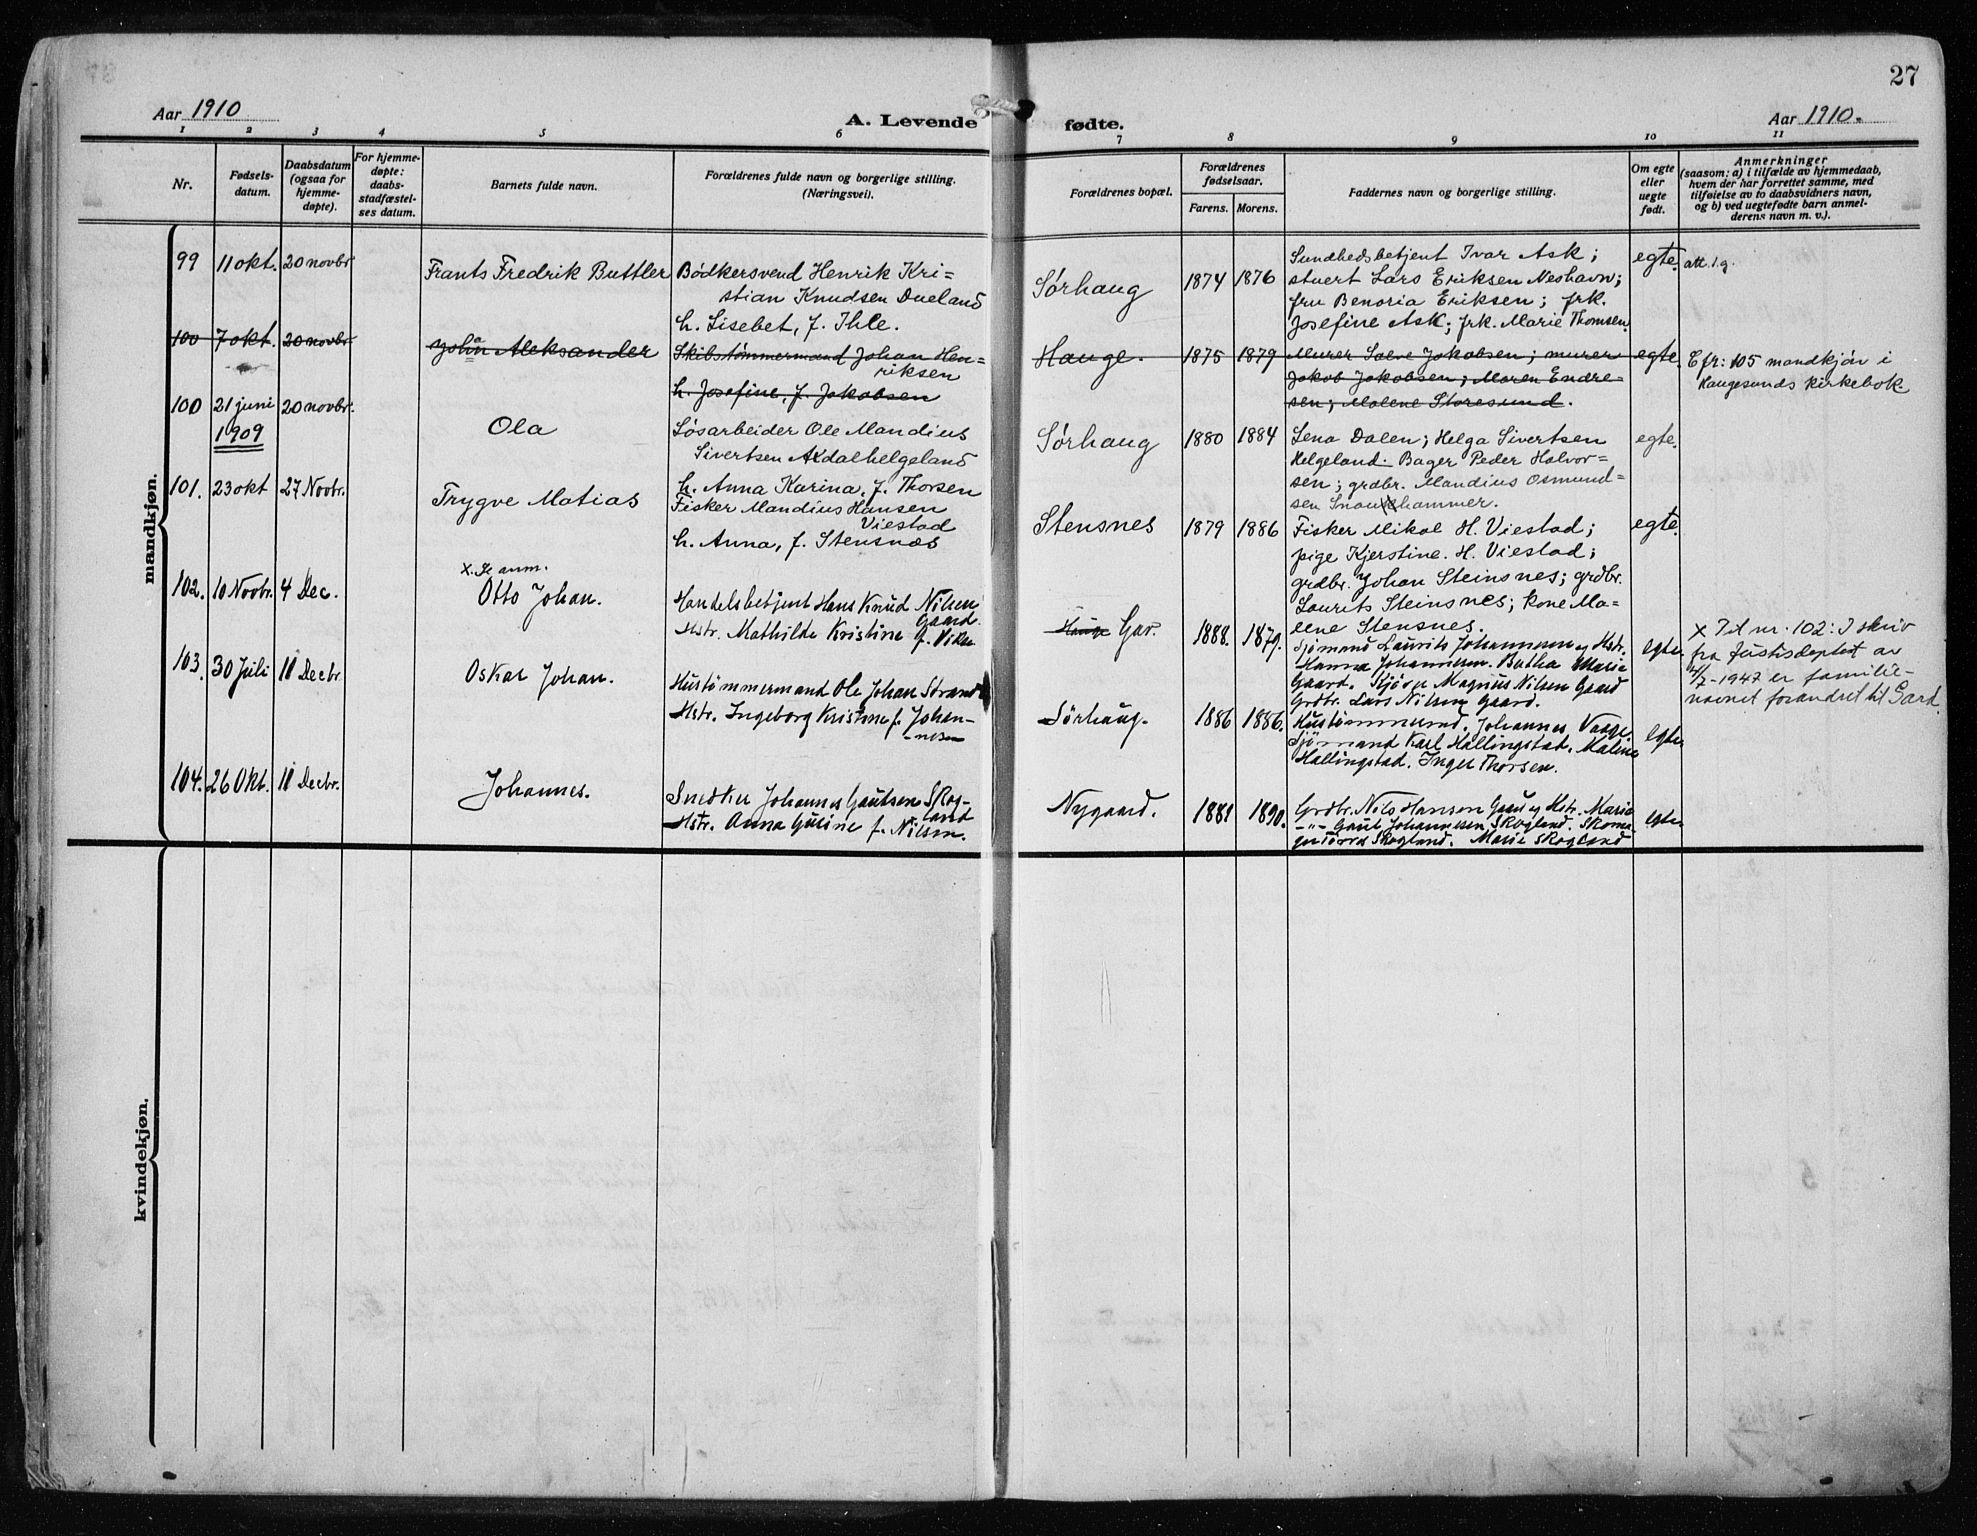 27
Aar 1910
A. Levende
fødte.
Aar 1910.
1 2 3 4 5 6 7 8 9 10 11
Nr.
Fødsels-
datum.
Daabsdatum
(ogsaa for
hjemme-
døpte).
For hjemme-
døpte:
daabs-
stadfæstel-
ses datum.
Barnets fulde navn.
Forældrenes fulde navn og borgerlige stilling.
(Næringsvei).
Forældrenes bopæl.
Forældrenes
fødselsaar.
Farens. Morens.
Faddernes navn og borgerlige stilling.
Om egte
eller
uegte
født.
Anmerkninger
(saasom: a) i tilfælde av hjemmedaab,
hvem der har forrettet samme, med
tilføielse av to daabsvidners navn,
og b) ved uegtefødte barn anmel-
derens navn m. v.).
mandkjøn.
99 11 okt. 20 novbr Frants Fredrik Buttler
Bödkersvend Henrik Kri-
stian Knudsen Dueland
h. Lisebet, f. Ihle.
Sørhaug 1874 1876
Sundhedsbetjent Ivar Ask;
stuert Lars Eriksen Neshavn;
fru Benoria Eriksen; frk.
Josefine Ask; frk. Marie Thomsen.
egte. att. l. g.
100 7 okt. 20 novbr Johan Aleksander
Skibstømmermand Johan Hen-
riksen
h. Josefine, f. Jakobsen
Hauge. 1875 1879
Murer Solve Jakobsen; murer
Jakob Jakobsen; Maren Endre-
sen; Malene Storesund.
egte.
E fr: 105 mandkjøn i
Haugesunds kirkebok
100 21 juni
1909
20 novbr. Ola
Løsarbeider Ole Mandius
Sivertsen Axdalhelgeland
h. Anna Karina, f. Thorsen
Sørhaug 1880 1884
Lena Dalen; Helga Sivertsen
Helgeland. Bager Peder Halvor-
sen; grdbr. Mandius Osmund-
sen
egte.
101. 23 okt 27 Novbr. Trygve Matias
Fisker Mandius Hansen
Viestad
h. Anna, f. Stensnæs
Stensnes 1879 1886
Fisker Mikal H. Viestad;
pige Kjerstine. H. Viestad;
grdbr. Johan Steinsnes; grdbr.
Laurits Steinsnes; kone Ma-
lene Stensnes.
egte.
x. Se anm.
102. 10 Novbr. 4 Dec. Otto Johan.
Handelsbetjent Hans Knud Nilsen
Gaard.
Hstr. Mathilde Kristine f. Vikse
Hauge Gar. 1888. 1879.
Sjømand Laurits Johannesen og Hstr.
Hanna Johannesen. Bertha Marie
Gaard. Magnus Nilsen Gaard
Grdbr. Lars Nilsen Gaard.
egte.
x Til nr. 102: I skriv
fra Justisdeptet av
/7-1947 er familie-
navnet forandret til Gard.
103. 30 Juli 11 Decbr. Oskar Johan.
Hustømmermand Ole Johan Strand
Hstr. Ingeborg Kristine f. Johan-
nesen
Sørhaug. 1886 1886.
Hustømmermd. Johannes
Sjømand Karl Hallingstad. Malene
Hallingstad. Inger Thorsen.
egte
104. 26 Okt. 11 Decbr. Johannes.
Snedker Johannes Gautsen Skog-
land
Hstr. Anna Gurine f. Nilsen.
Nygaard. 1881 1890.
Grdbr. Nils Hansen Gaard og Hstr. Maria
-"- Gaut Johannesen Skogland. Skoma-
ger Skogland. Marie Skogland
egte
kvindekjøn.